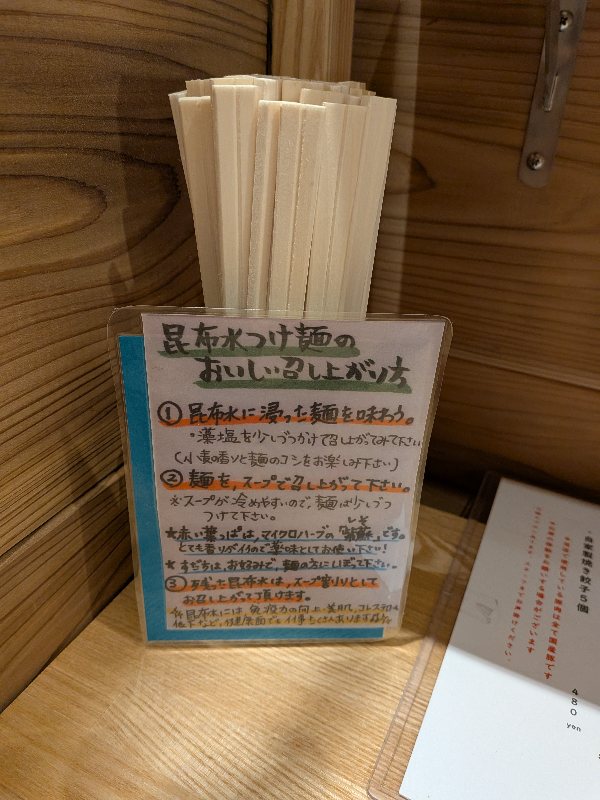 昆布水つけ麺の
おいしい召し上がり方
① 昆布水に浸った麺を味わう。
・藻塩を少しづつかけて召し上がってみて下さい
(小麦の香りと麺のコシをお楽しみ下さい)
② 麺を、スープで召し上がって下さい。
※スープが冷めやすいので、麺は少しづつ
つけて下さい。
★赤い葉っぱは、マイクロハーブの「紫蘇」です。
しそ
とても香りがイイので薬味としてお使い下さい!
★すだちは、お好みで、麺の方にしぼって下さい。
③ お残った昆布水は、スープ割りとして
お召し上がって頂けます。
昆布水には免疫力の向上・美肌、コレステロール
低下など、健康面でも
自家製焼き餃子5個
480
yen